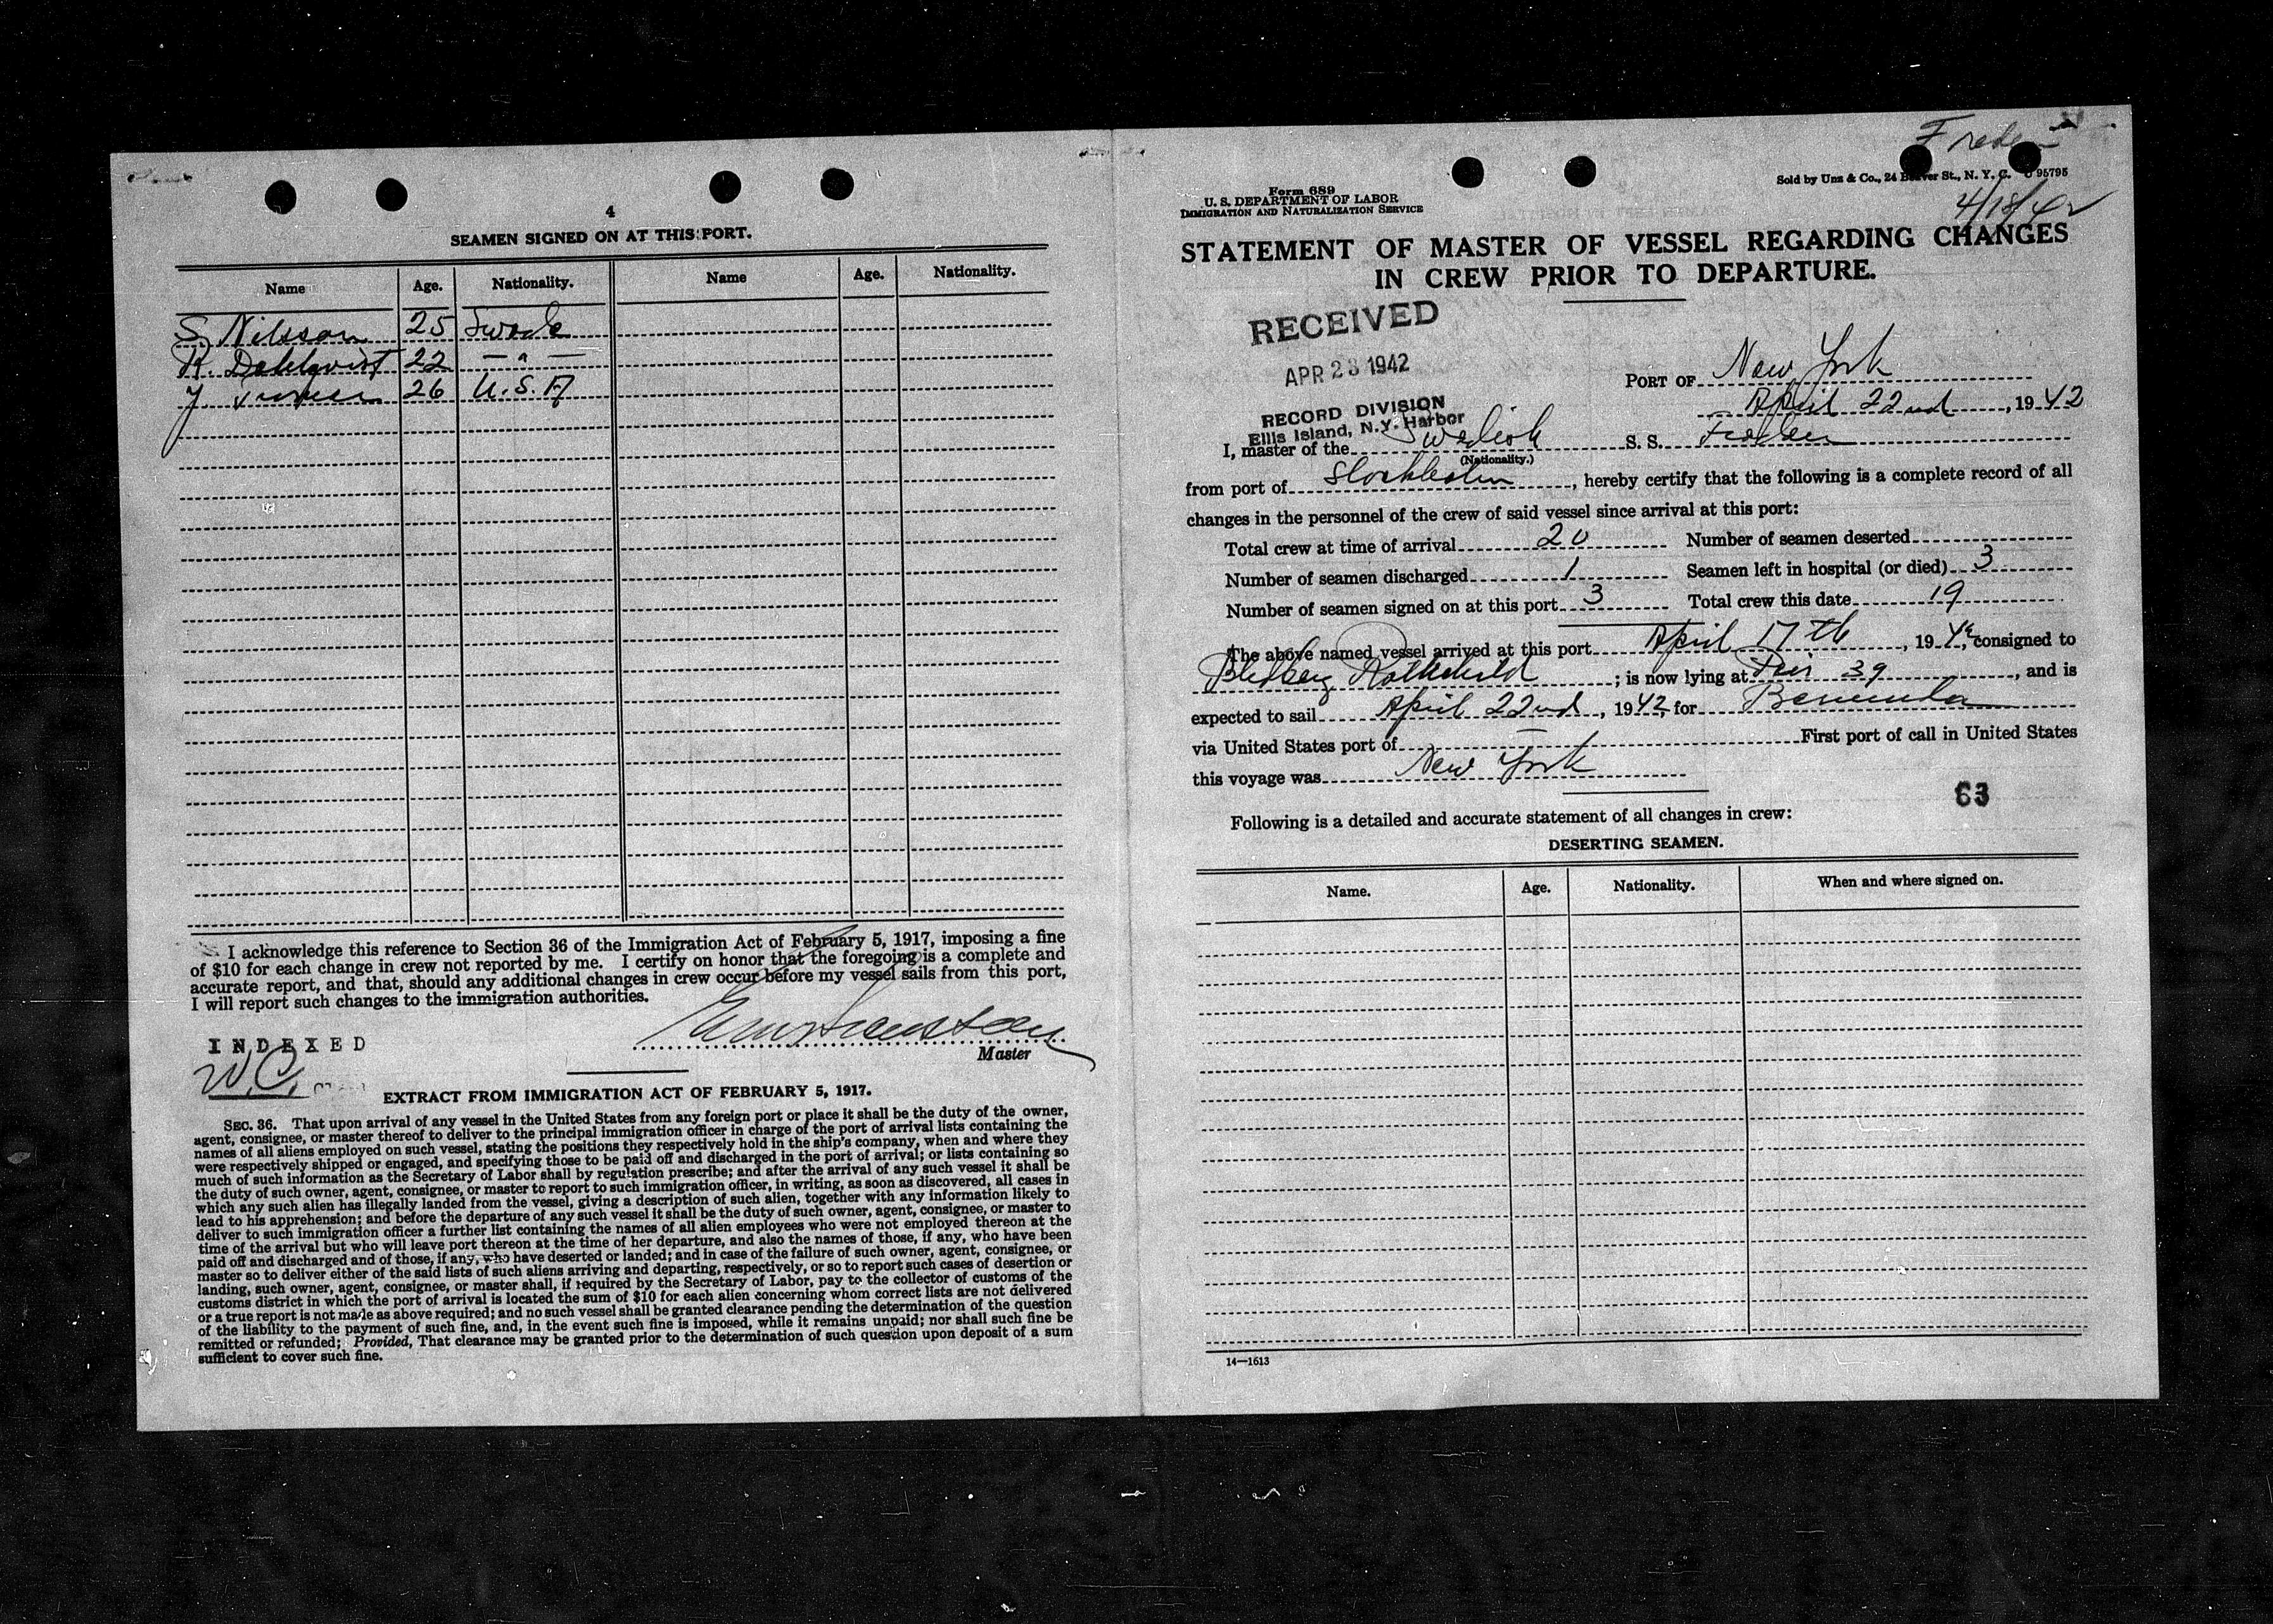 4
SEAMEN SIGNED ON AT THIS PORT.
Name Age. Nationality. Name Age. Nationality.
S. Nilsson 25 Swede
R. Dahlqvist 22 — " —
J. 26 U.S.A
I acknowledge this reference to Section 36 of the Immigration Act of February 5, 1917, imposing a fine
of $10 for each change in crew not reported by me. I certify on honor that the foregoing is a complete and
accurate report, and that, should any additional changes in crew occur before my vessel sails from this port,
I will report such changes to the immigration authorities.
INDEXED
W.C.
Master
EXTRACT FROM IMMIGRATION ACT OF FEBRUARY 5, 1917.
SEC. 36. That upon arrival of any vessel in the United States from any foreign port or place it shall be the duty of the owner,
agent, consignee, or master thereof to deliver to the principal immigration officer in charge of the port of arrival lists containing the
names of all aliens employed on such vessel, stating the positions they respectively hold in the ship's company, when and where they
were respectively shipped or engaged, and specifying those to be paid off and discharged in the port of arrival; or lists containing so
much of such information as the Secretary of Labor shall by regulation prescribe; and after the arrival of any such vessel it shall be
the duty of such owner, agent, consignee, or master to report to such immigration officer, in writing, as soon as discovered, all cases in
which any such alien has illegally landed from the vessel, giving a description of such alien, together with any information likely to
lead to his apprehension; and before the departure of any such vessel it shall be the duty of such owner, agent, consignee, or master to
deliver to such immigration officer a further list containing the names of all alien employees who were not employed thereon at the
time of the arrival but who will leave port thereon at the time of her departure, and also the names of those, if any, who have been
paid off and discharged and of those, if any, who have deserted or landed; and in case of the failure of such owner, agent, consignee, or
master so to deliver either of the said lists of such aliens arriving and departing, respectively, or so to report such cases of desertion or
landing, such owner, agent, consignee, or master shall, if required by the Secretary of Labor, pay to the collector of customs of the
customs district in which the port of arrival is located the sum of $10 for each alien concerning whom correct lists are not delivered
or a true report is not made as above required; and no such vessel shall be granted clearance pending the determination of the question
of the liability to the payment of such fine, and, in the event such fine is imposed, while it remains unpaid; nor shall such fine be
remitted or refunded; Provided, That clearance may be granted prior to the determination of such question upon deposit of a sum
sufficient to cover such fine.
Form 689
U. S. DEPARTMENT OF LABOR
IMMIGRATION AND NATURALIZATION SERVICE
Sold by Unz & Co., 24 Beaver St., N. Y. C. 95795
4/18/42
STATEMENT OF MASTER OF VESSEL REGARDING CHANGES
IN CREW PRIOR TO DEPARTURE.
RECEIVED
APR 23 1942
RECORD DIVISION
Ellis Island, N.Y. Harbor
PORT OF New York
April 22nd, 1942
I, master of the Swedish S. S.
(Nationality.)
from port of Stockholm, hereby certify that the following is a complete record of all
changes in the personnel of the crew of said vessel since arrival at this port:
Total crew at time of arrival 20 Number of seamen deserted
Number of seamen discharged 1 Seamen left in hospital (or died) 3
Number of seamen signed on at this port 3 Total crew this date 19
The above named vessel arrived at this port April 17th, 1942, consigned to
Rothchild; is now lying at Pier 39, and is
expected to sail April 22nd, 1942, for Bermuda
via United States port of — First port of call in United States
this voyage was New York
63
Following is a detailed and accurate statement of all changes in crew:
DESERTING SEAMEN.
Name. Age. Nationality. When and where signed on.
14—1613